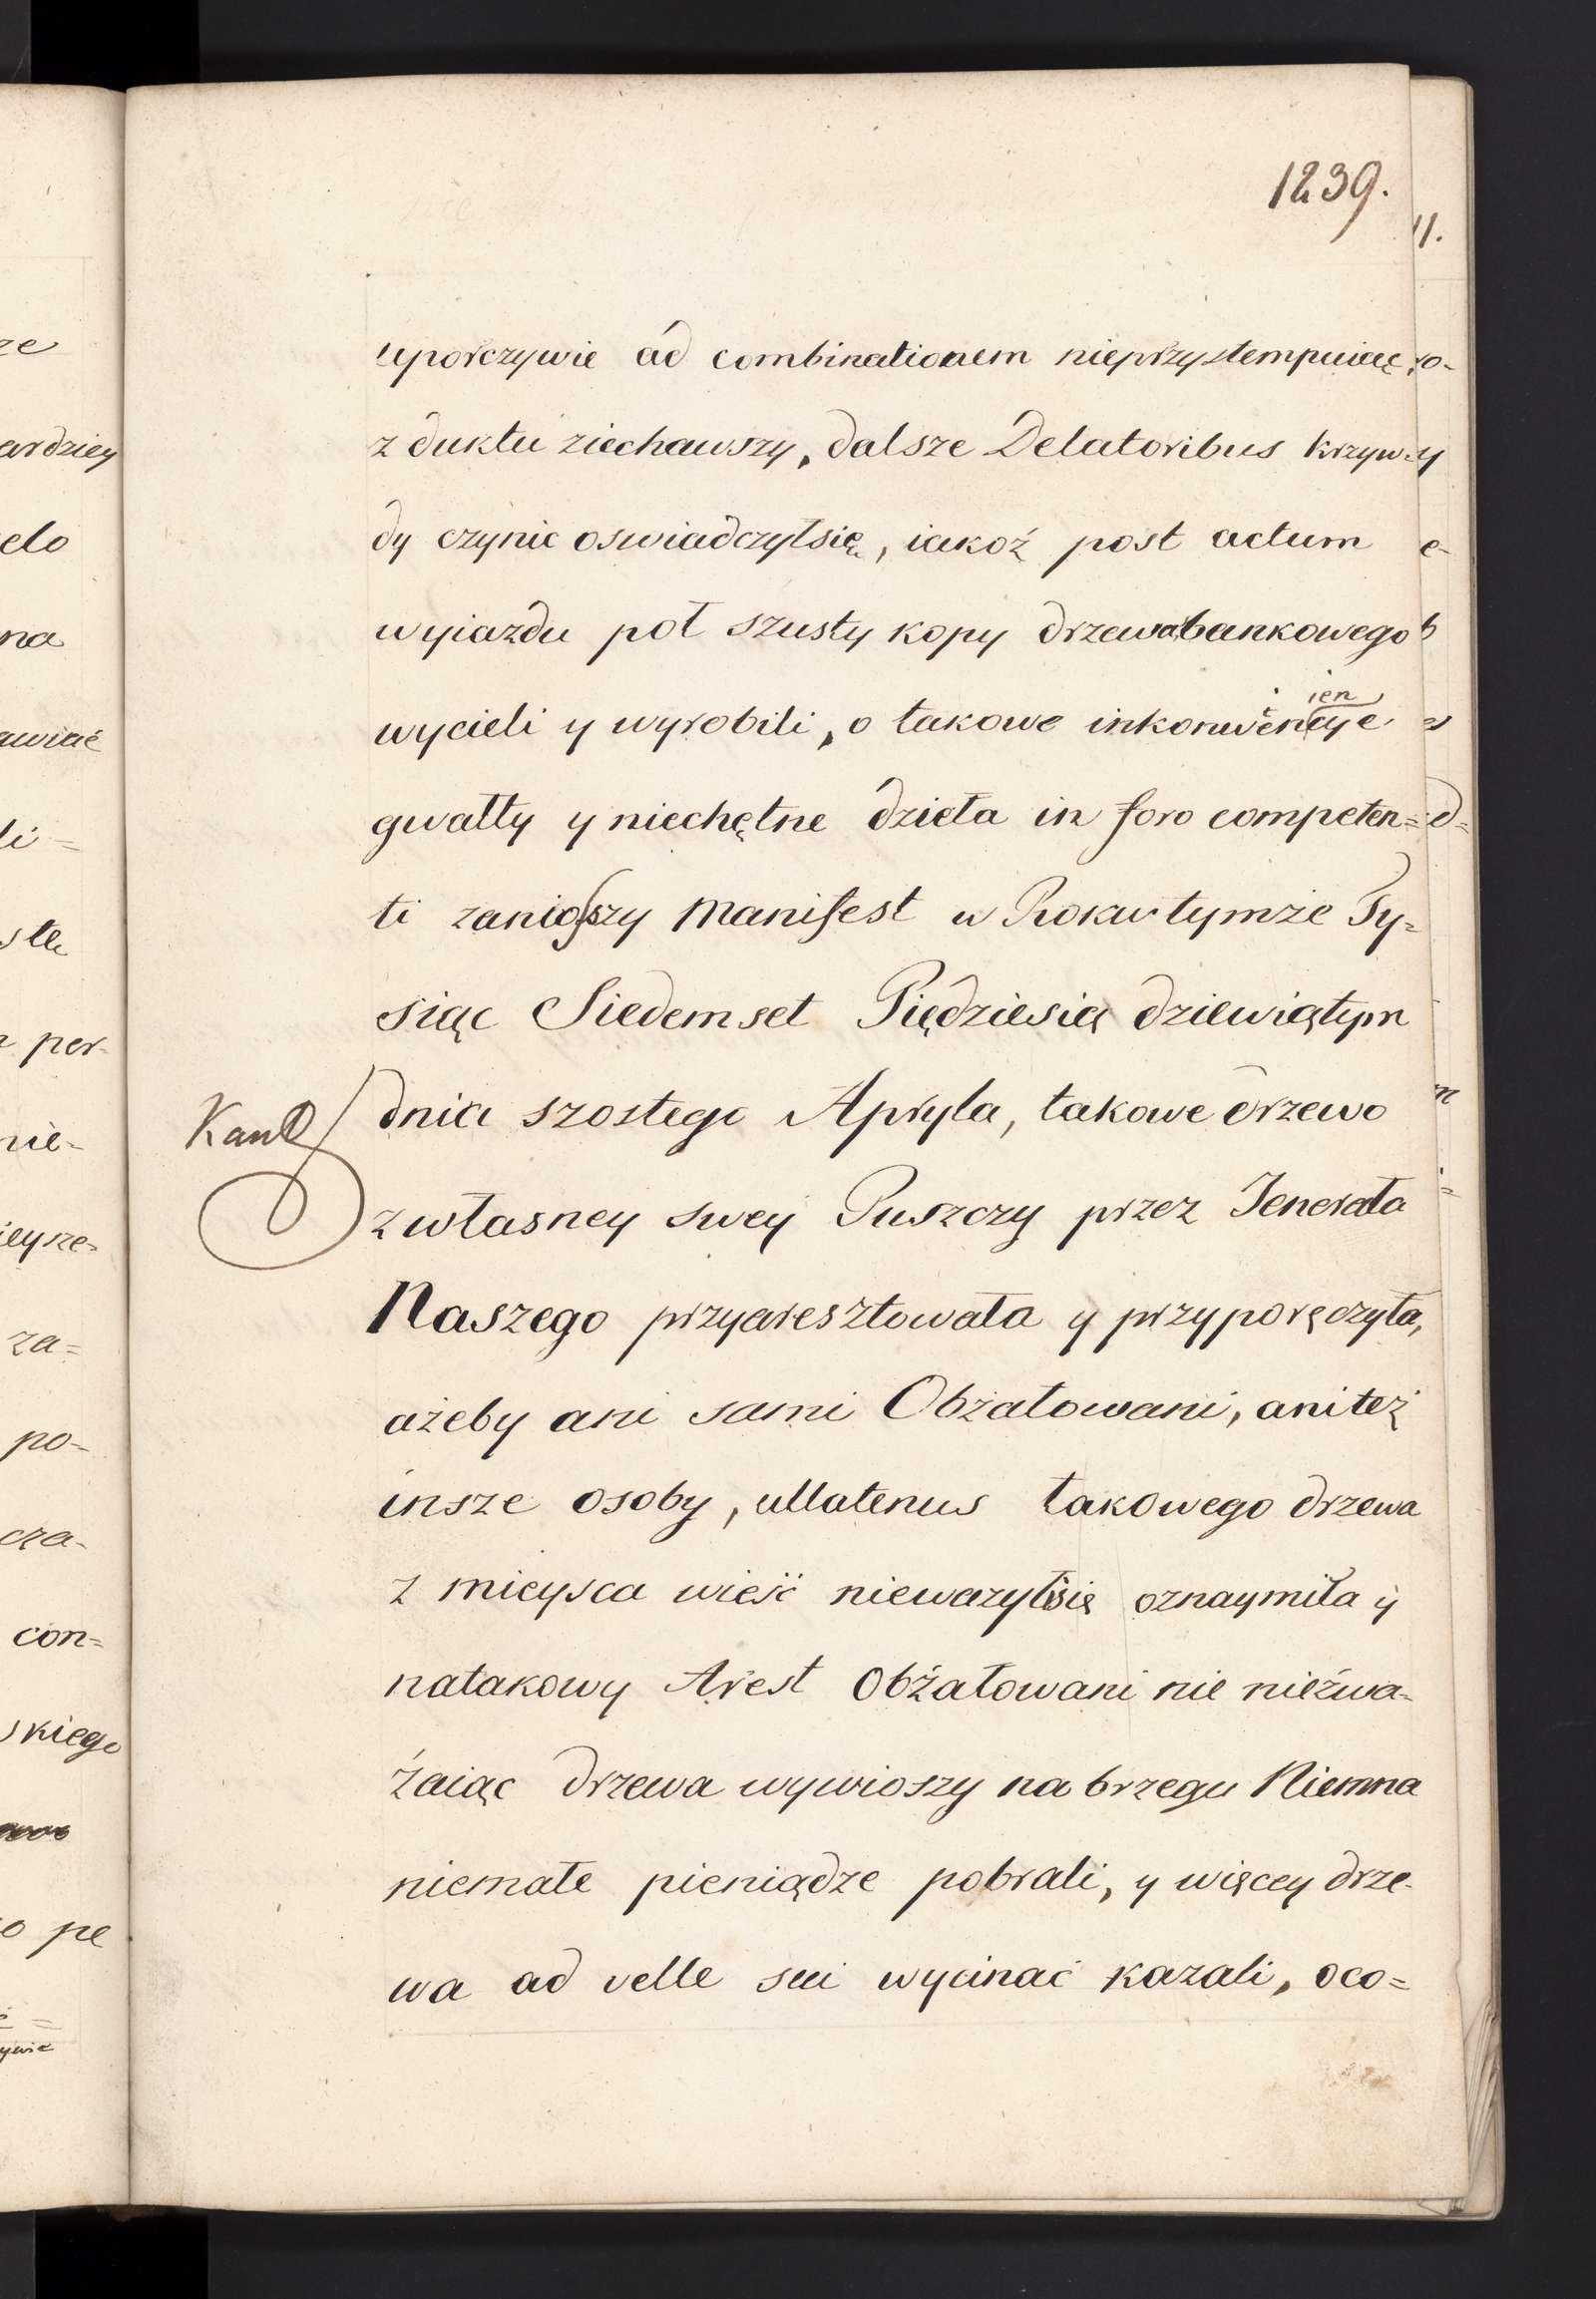 1239.
uporczywie ad combinationem nieprzystempuiąc,
z duktu ziechawszy, dalsze Delatoribus krzyw=
dy czynic oswiadczyłsię, iakoż post actum
wyiazdu poł szusty kopy drzewa bankowego
wycieli y wyrobili, o takowe inkonwencyie
ien
gwałty y niechętne dzieła in foro competen=
ti zaniosszy Manifest w Roku tymże Ty=
siąc Siedemset Piędziesią dziewiątym
dnia szostego Apryla, takowe drzewo
z własney swey Puszczy przez Jenerała
Naszego przyaresztowała y przyporęczyła,
ażeby ani sami Obżałowani, ani też
insze osoby, ullatenus takowego drzewa
z mieysca wieść nieważyłsię oznaymiła y
natakowy Arest Obżałowani nie nieźwa=
żaiąc drzewa wywioszy na brzegu Niemna
niemałe pieniądze pobrali, y więcey drze=
wa ad velle sui wycinać kazali, oco=